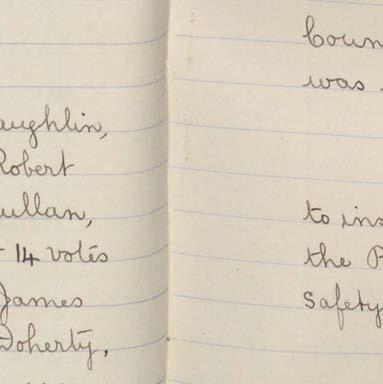 aughlin,
Robert
ullan,
14 votes
James
Doherty,
Coun
was
to ins
the P
Safety